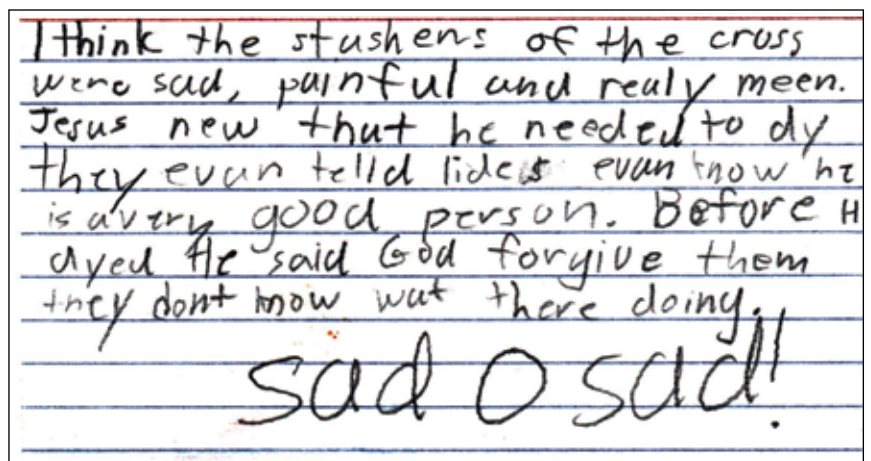 I think the stushens of the cross
were sad, painful and realy meen.
Jesus new that he needed to dy
they evan telld lides evan know he
is a very good person. Before H
dyed He said God forgive them
they dont know wat there doing.
sad O sad!